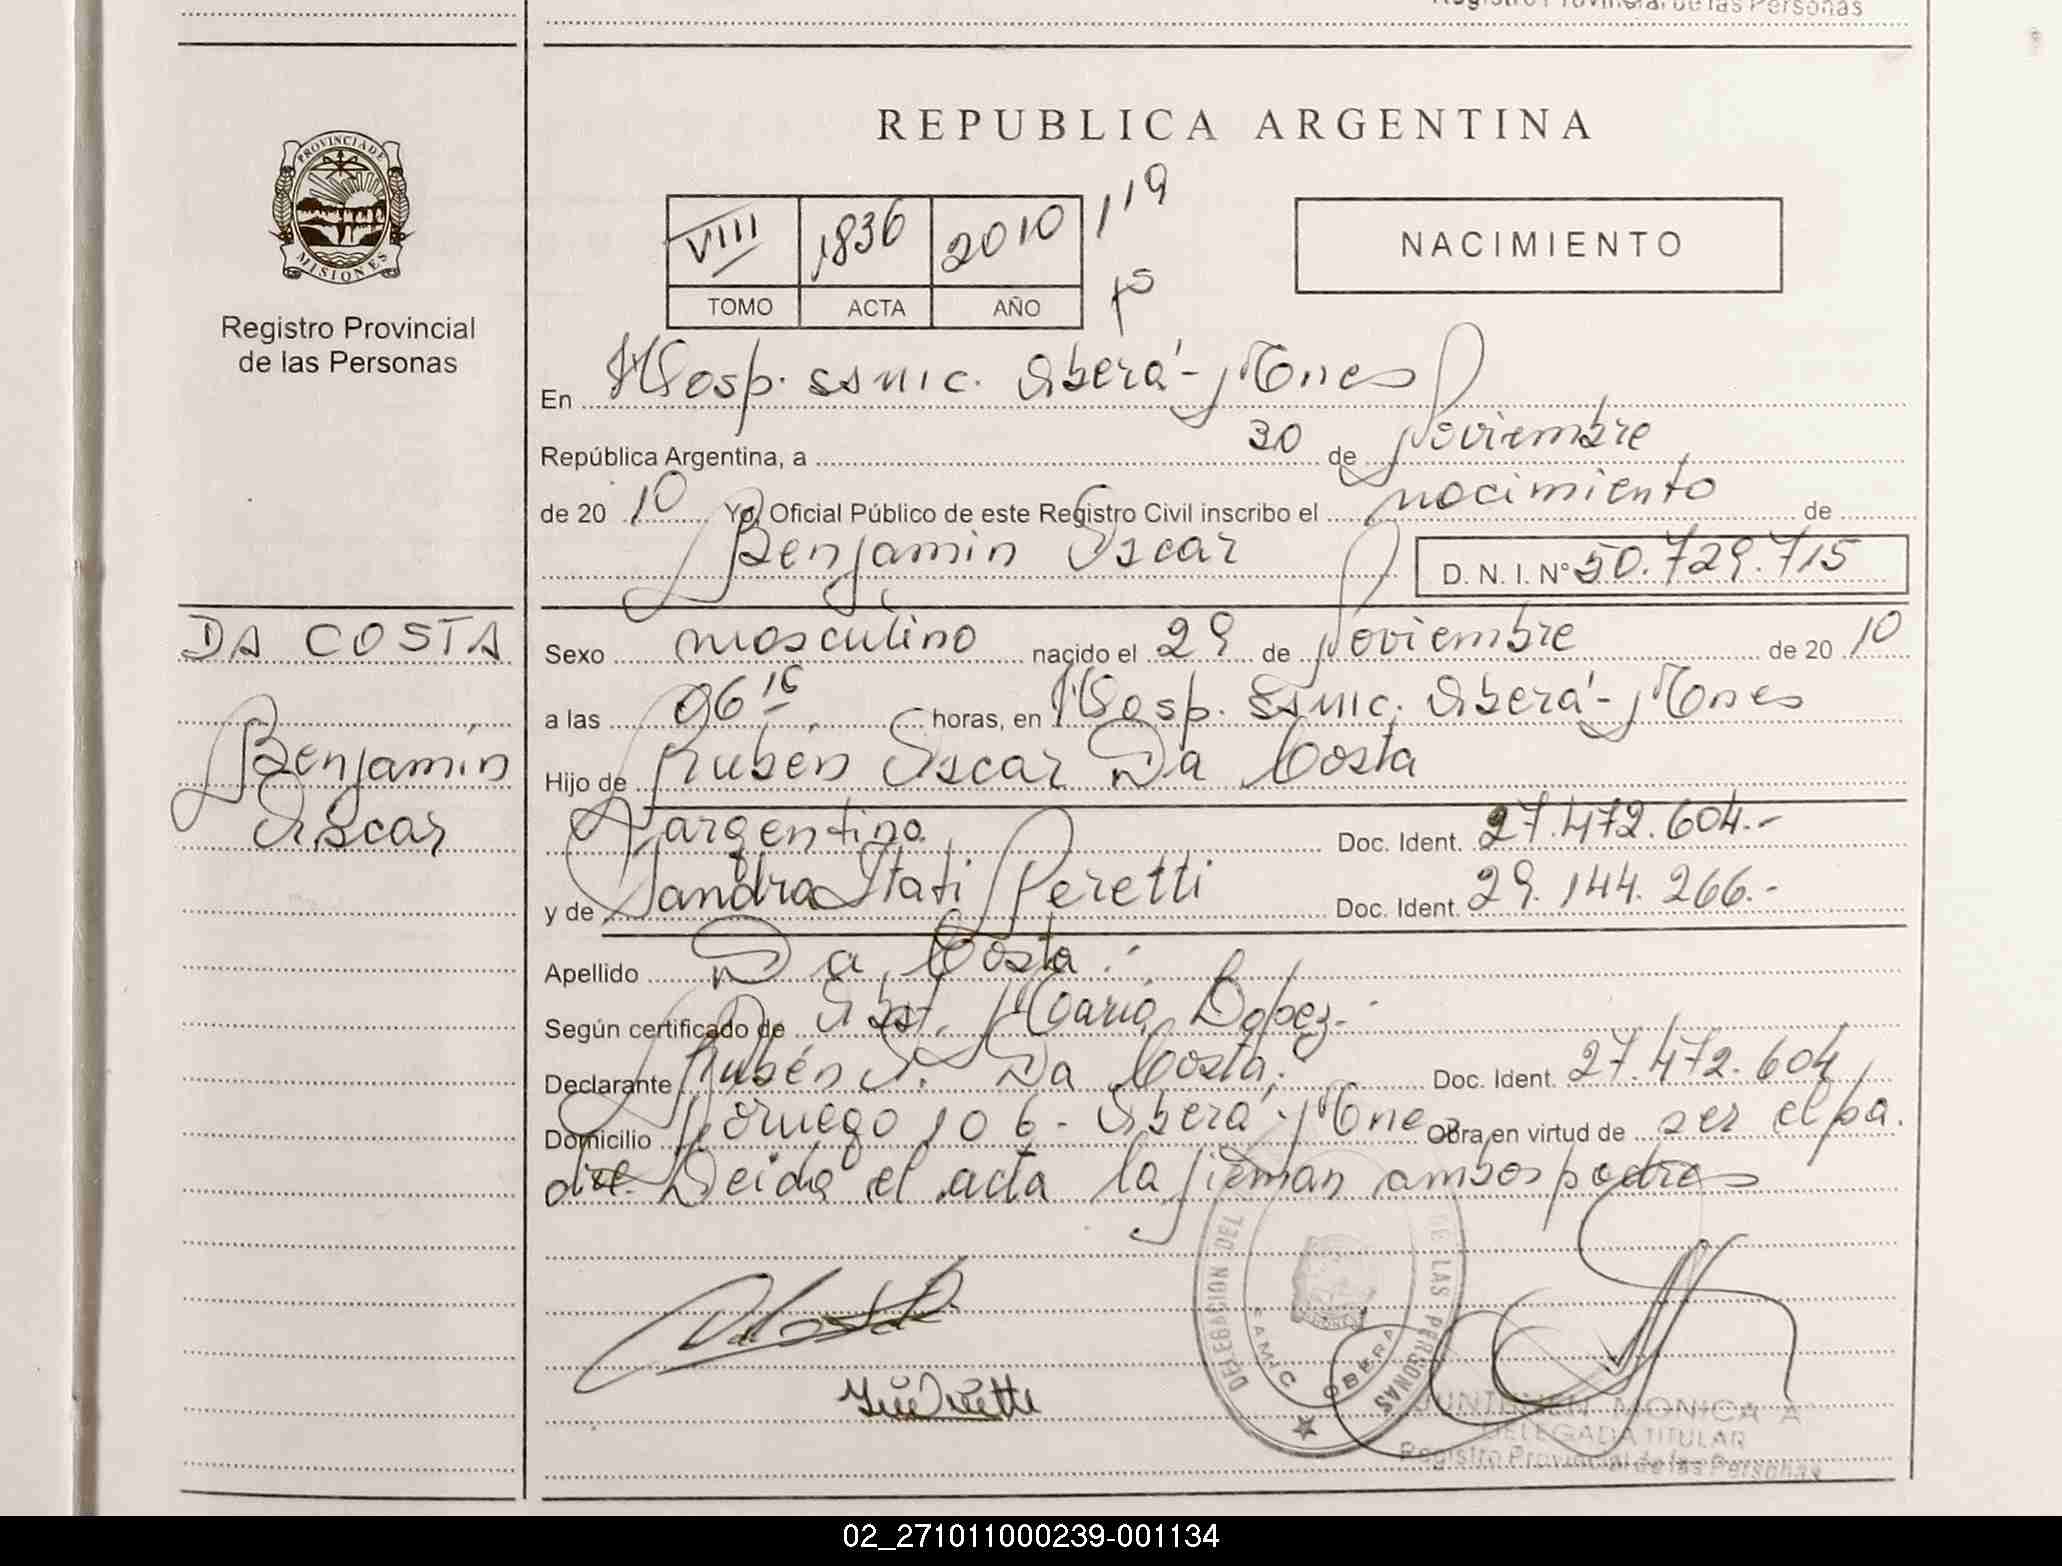 Registro Provincial de las Personas
REPUBLICA ARGENTINA
PROVINCIA DE
MISIONES
Registro Provincial
de las Personas
VIII 1836 2010 119
TOMO ACTA AÑO
NACIMIENTO
En Hosp. SSMIC. Oberá - Mnes
República Argentina, a 30 de Noviembre
de 20 10 Yo, Oficial Público de este Registro Civil inscribo el nacimiento de
Benjamín Oscar D. N. I. Nº 50.729.715
DA COSTA
Benjamín
Oscar
Sexo masculino nacido el 29 de Noviembre de 20 10
a las 06 15 horas, en Hosp. SSMIC. Oberá - Mnes
Hijo de Rubén Oscar Da Costa
argentino Doc. Ident. 27.472.604.-
y de Sandra Itatí Peretti Doc. Ident. 29.144.266.-
Apellido Da Costa.-
Según certificado de Obst. María Lopez.-
Declarante Rubén O. Da Costa; Doc. Ident. 27.472.604
Domicilio Noruega 106 - Oberá - Mnes Obra en virtud de ser el pa.
dre. Leida el acta la firman ambos padres
DELEGACION DEL DE LAS PERSONAS
SAMIC OBERA
MONICA A
DELEGADA TITULAR
Registro Provincial de las Personas
02_271011000239-001134